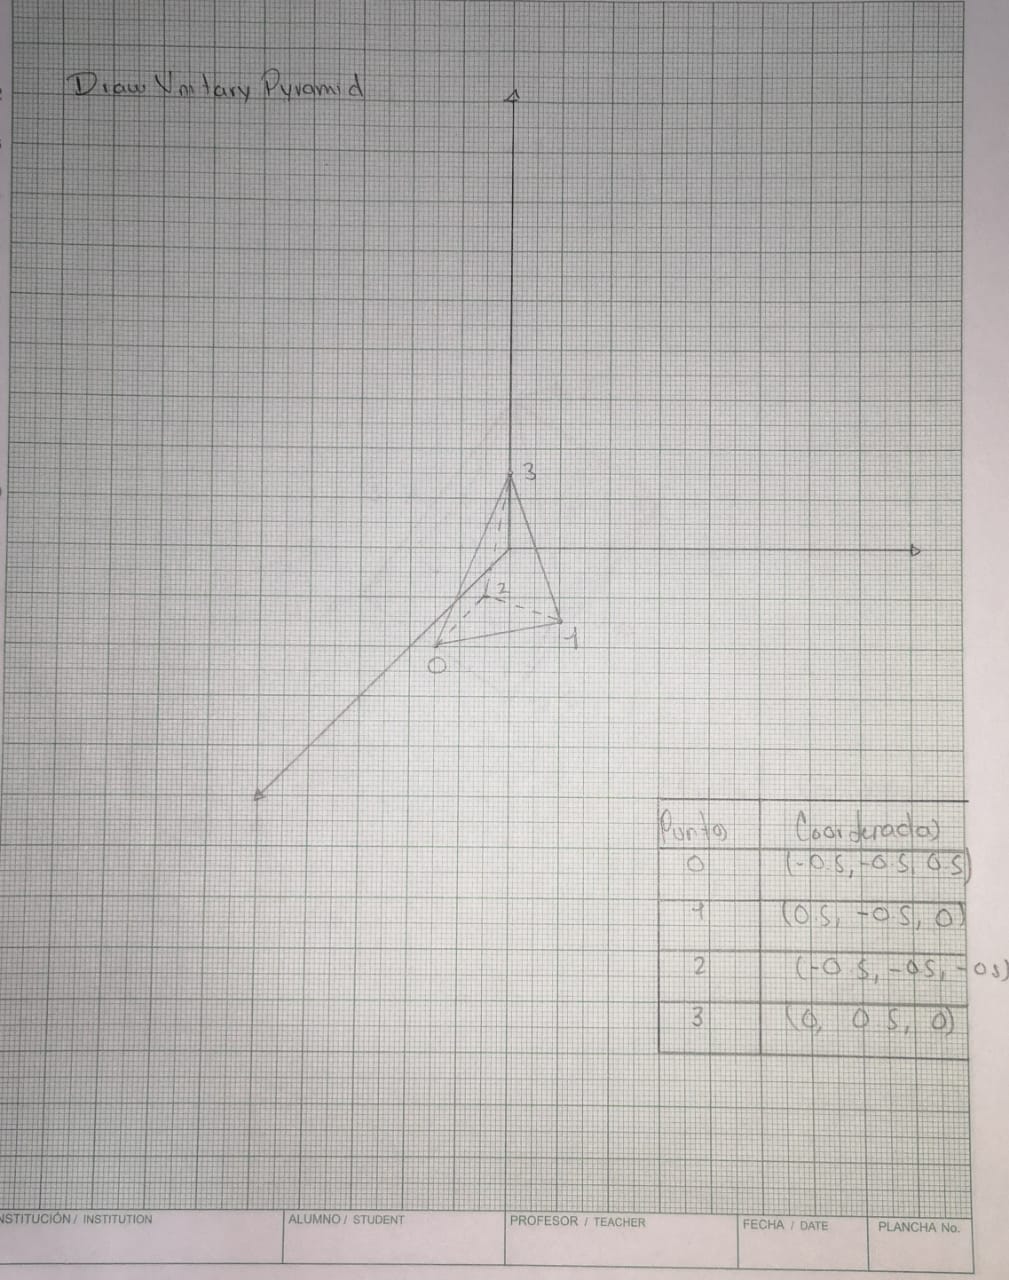 Draw Unitary Pyramid
3
2
1
0
Puntos Coordenadas
0 (-0.5, -0.5, 0.5)
1 (0.5, -0.5, 0)
2 (-0.5, -0.5, -0.5)
3 (0, 0.5, 0)
NSTITUCIÓN / INSTITUTION ALUMNO / STUDENT PROFESOR / TEACHER FECHA / DATE PLANCHA No.